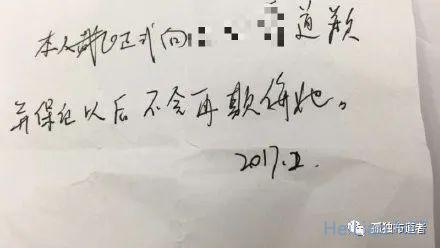 本人武己正式向 道歉
并保证以后不会再欺侮她。
2017.2.
孤独布道者